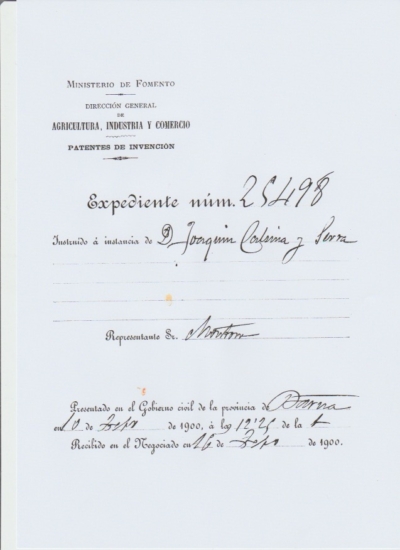 MINISTERIO DE FOMENTO
DIRECCIÓN GENERAL
DE
AGRICULTURA, INDUSTRIA Y COMERCIO
PATENTES DE INVENCIÓN
Expediente núm. 25498
Instruido á instancia de D. Joaquin Codina y Serra
Representante Sr.
Presentado en el Gobierno civil de la provincia de Barna
en 10 de de 1900, á las 12'25 de la t
Recibido en el Negociado en 16 de de 1900.